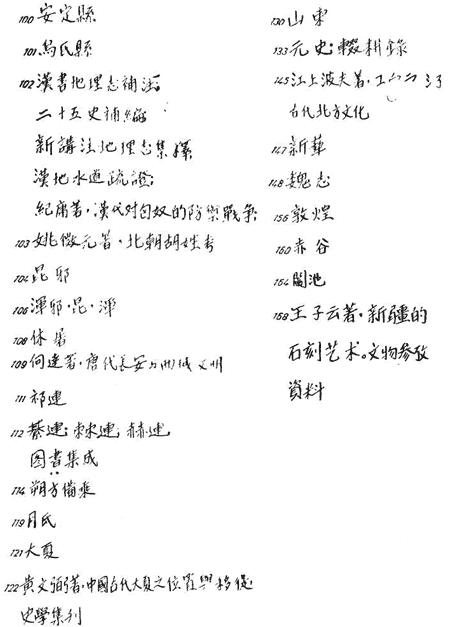 100 安定縣
101 烏氏縣
102 漢書地理志補注;
二十五史補編
新講注地理志集釋
漢地水道疏證;
紀庸著, 漢代対匈奴的防禦戰爭
103 姚微元著, 北朝胡姓考
104 昆邪
106 渾邪·昆·渾
108 休屠
109 向達著, 唐代長安与西域文明
111 祁連
112 綦連; 赫連
图書集成
114 朔方備乘
119 月氏
121 大夏
122 黄文弼著, 中國古代大夏之位置與移徙
史學集刊
130 山東
133 元史; 輟耕錄
145 江上波夫著,
古代北方文化
147 新華
148 魏志
156 敦煌
160 赤谷
164 闐池
168 王子云著, 新疆的
石刻艺术。文物参攷
資料